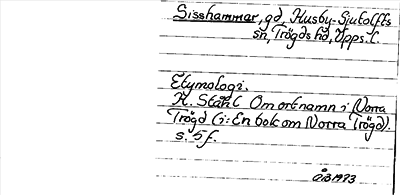 Sisshammar, gd, Husby-Sjutolfts
sn, Trögds hd, Upps. l.
Etymologi.
H. Ståhl Om ortnamn i Norra
Trögd (i: En bok om Norra Trögd).
s. 5 f.
ÅB 1973